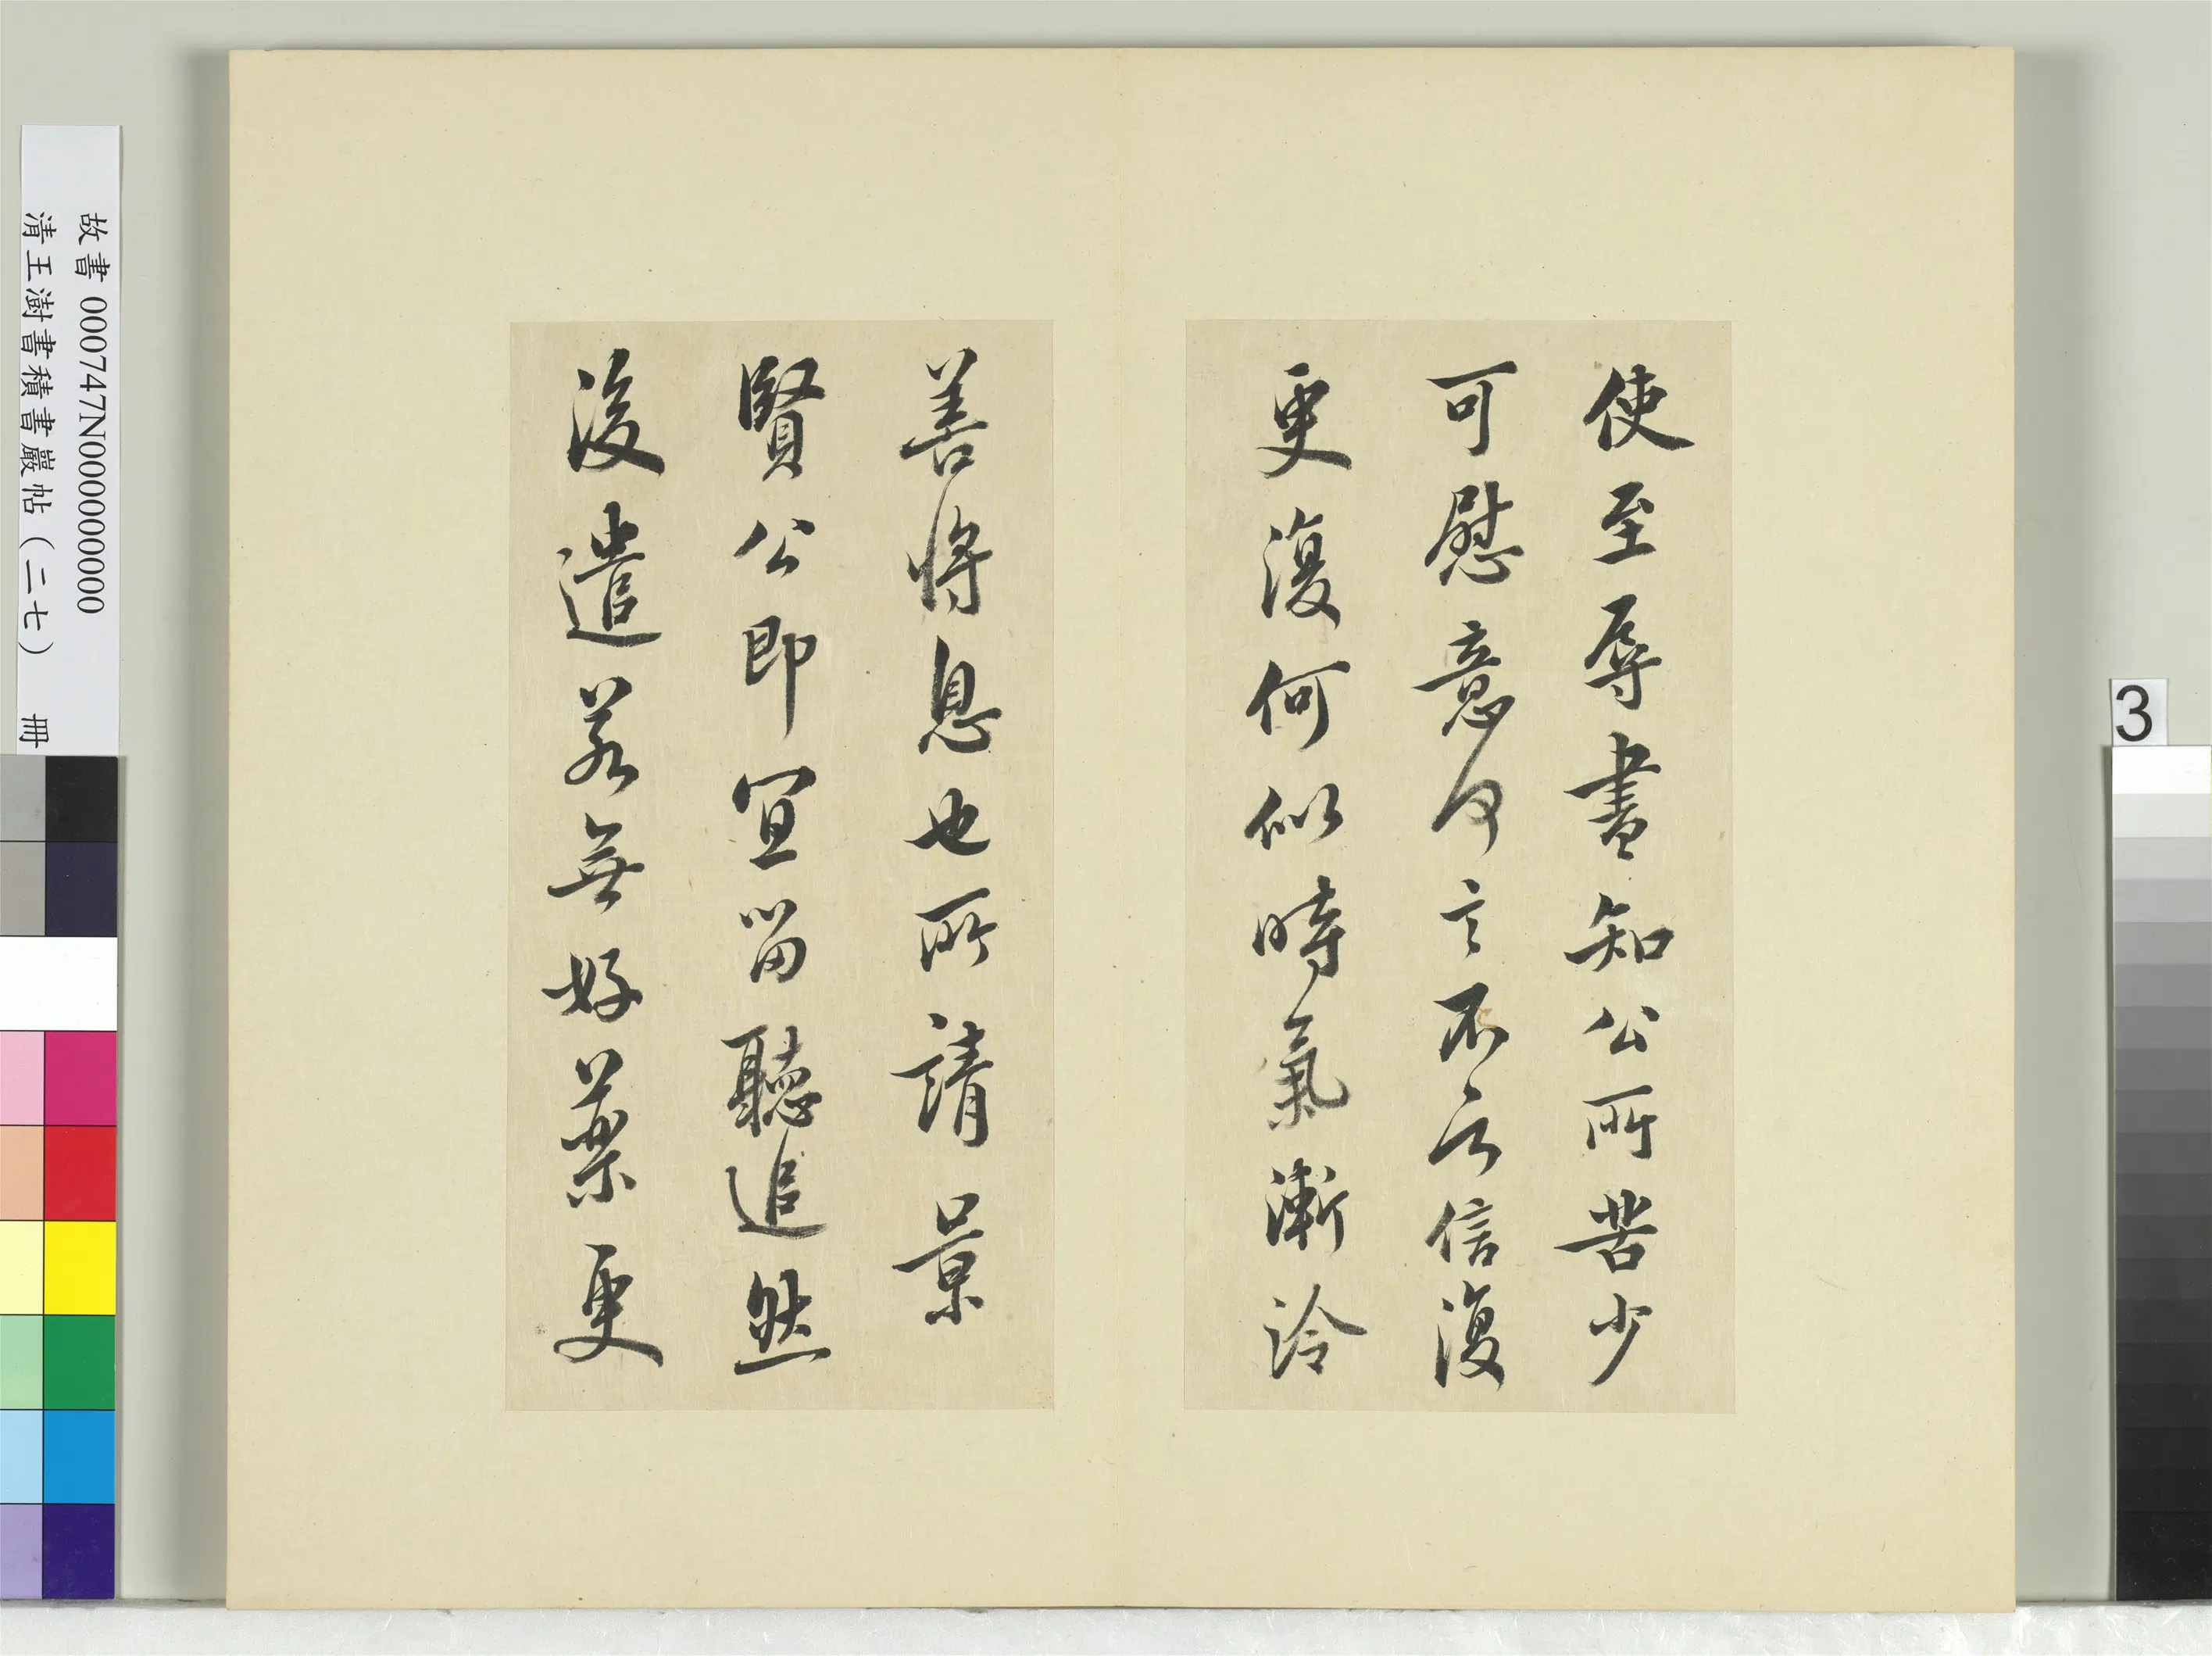 使至辱書知公所苦少
可慰意何言不信復
更復何似時氣漸冷
善將息也所請景
賢公即宜留聽追然
後遣若無好藥更
故書 000747N000000000
清王澍書積書巖帖(二七) 冊
3